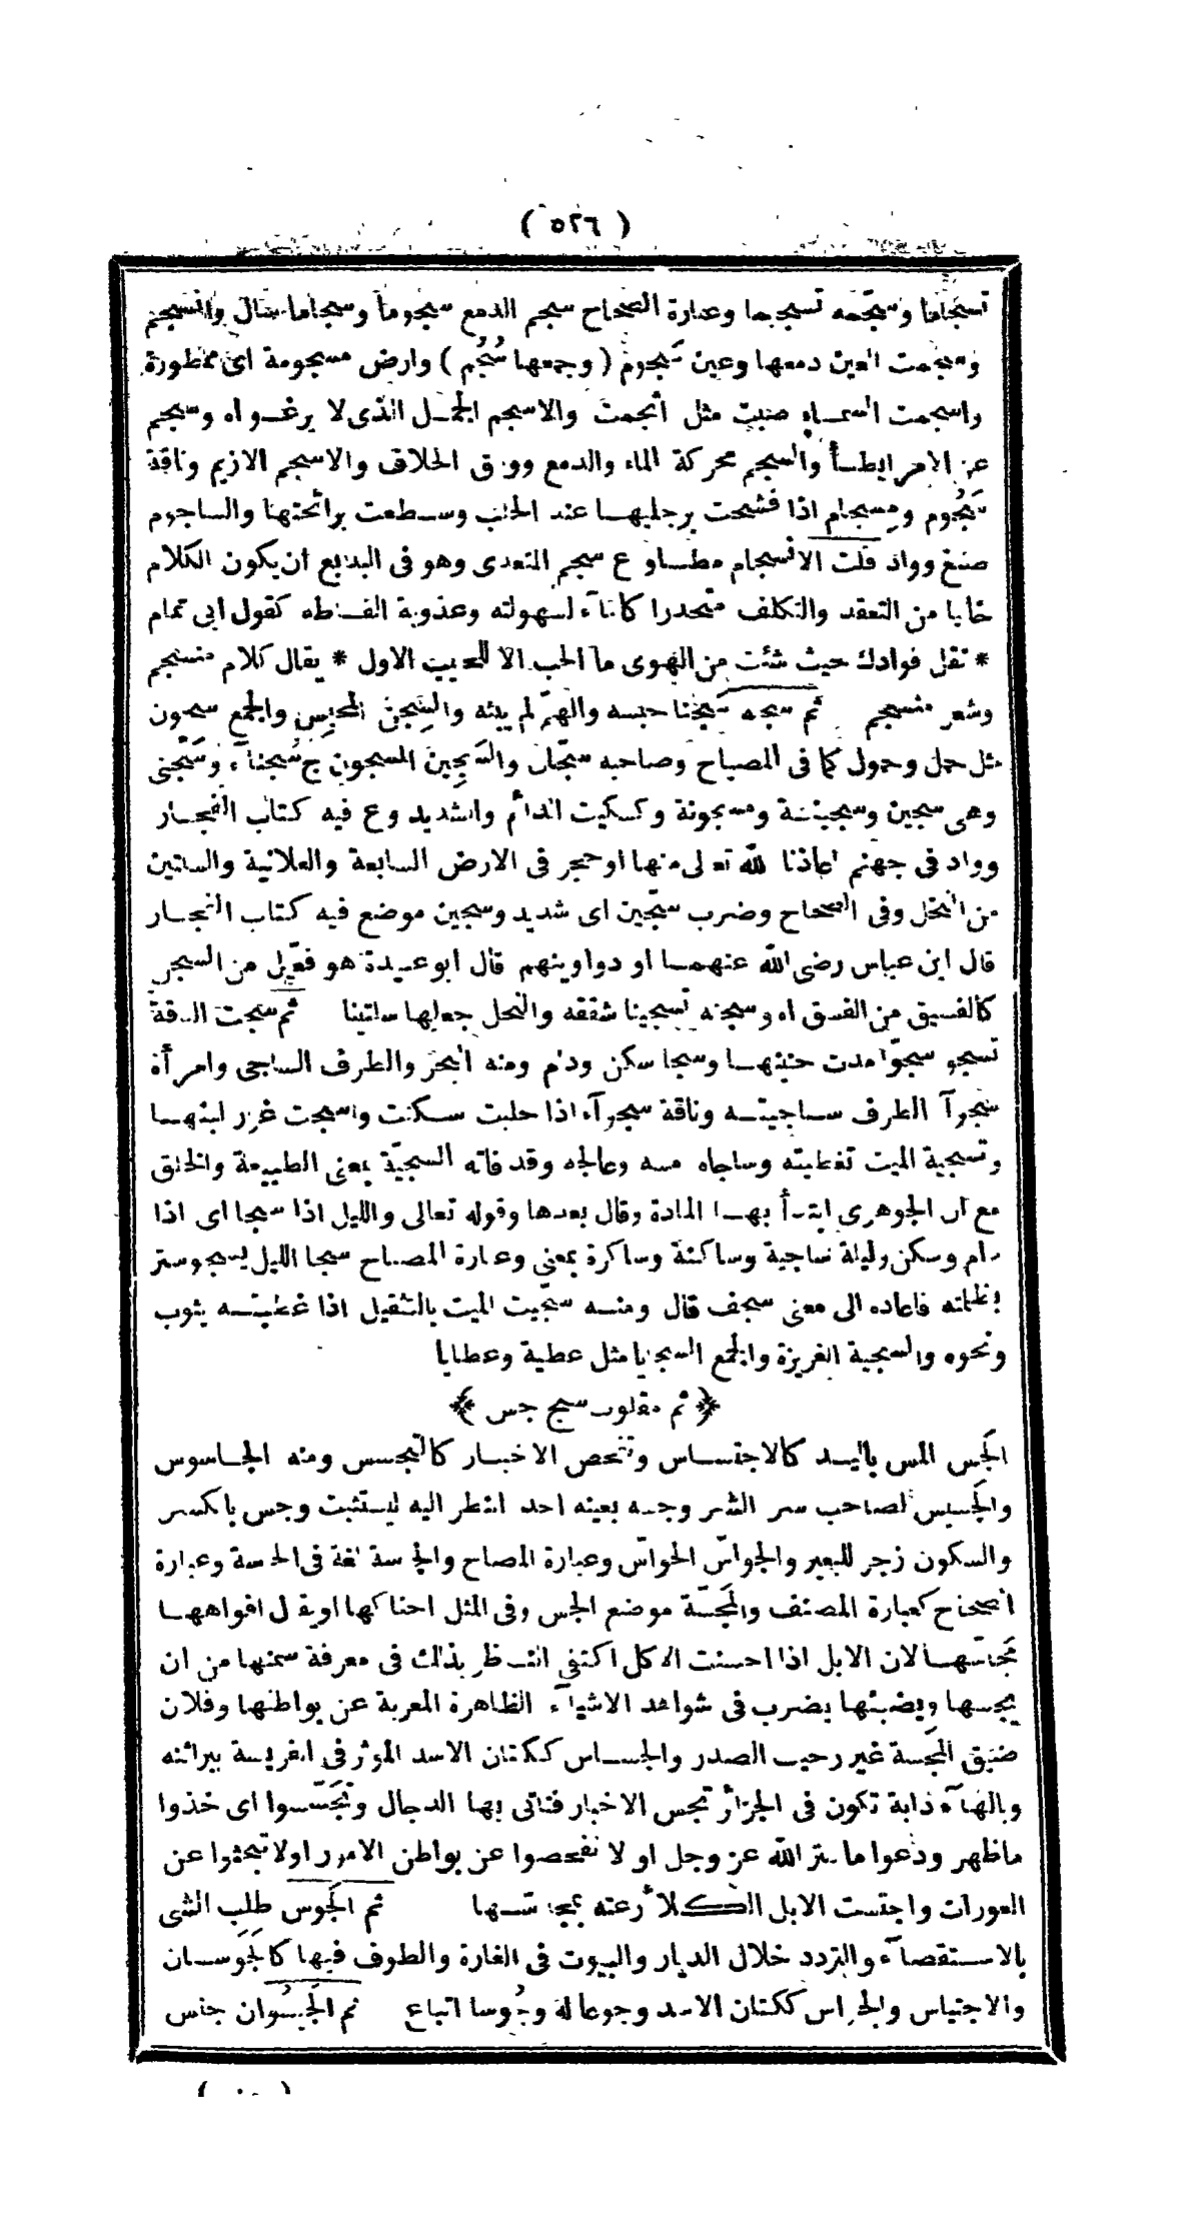 ( ٥٢٦ )
تسجاما وسجّمه تسجيما وعبارة الصحاح سجم الدمع سجوما وسجاما سال وانسجم
وسجمت العين دمعها وعين سَجوم ( وجمعها سُجُم ) وارض مسجومة اى ممطورة
واسجمت السماء صبت مثل اثجمت والاسجم الجمل الذى لا يرغو اه وسجم
عن الامر ابطأ والسجم محركة الماء والدمع وورق الخلاف والاسجم الازيم وناقة
سَجُوم ومِسجام اذا فشحت برجليها عند الحلب وسطعت برائحتها والساجوم
صبغ وواد قلت الانسجام مطاوع سجم المتعدى وهو فى البديع ان يكون الكلام
خاليا من التعقد والتكلف متحدرا كالماء لسهولته وعذوبة الفاظه كقول ابى تمام
* نقل فوادك حيث شئت من الهوى ما الحب الا للحبيب الاول * يقال كلام منسجم
وشعر منسجم ثم سجنه سَجْنا حبسه والهمّ لم يبثه والسِجن المحبس والجمع سجون
مثل حمل وحمول كما فى المصباح وصاحبه سجّان والسَجِين المسجون ج سُجناء وسَجْنى
وهى سجين وسجينة ومسجونة وكسكيت الدائم والشديد وع فيه كتاب الفجار
وواد فى جهنم اعاذنا الله تعالى منها او حجر فى الارض السابعة والعلانية والسلتين
من النخل وفى الصحاح وضرب سجّين اى شديد وسجين موضع فيه كتاب الفجار
قال ابن عباس رضى الله عنهما او دواوينهم قال ابو عبيدة هو فعّيل من السجن
كالفسيق من الفسق اه وسجنه تسجينا شققه والنخل جعلها سلتينا ثم سجت الناقة
تسجو سجوّا مدت حنينها وسجا سكن ودام ومنه البحر والطرف الساجى وامرأة
سَجوآ الطرف ساجيته وناقة سجوآء اذا حلبت سكنت واسجت غزر لبنها
وتسجية الميت تغطيته وساجاه مسه وعالجه وقد فاته السجيّة بمعنى الطبيعة والخلق
مع ان الجوهرى ابتدأ بها المادة وقال بعدها وقوله تعالى والليل اذا سجا اى اذا
دام وسكن وليلة ساجية وساكنة وساكرة بمعنى وعبارة المصباح سجا الليل يسجو ستر
بظلمته فاعاده الى معنى سجف قال ومنه سجّيت الميت بالتثقيل اذا غطيته بثوب
ونحوه والسجية الغريزة والجمع السجايا مثل عطية وعطايا
﴿ ثم مقلوب سج جس ﴾
الجَس المس باليد كالاجتساس وتفحص الاخبار كالتجسس ومنه الجاسوس
والجَسيس لصاحب سر الشر وجسه بعينه احد النظر اليه ليستثبت وجس بالكسر
والسكون زجر للبعير والجواسّ الحواسّ وعبارة المصباح والجاسة لغة فى الحاسة وعبارة
الصحاح كعبارة المصنف والمَجسّة موضع الجس وفى المثل احناكها او يقال افواهها
مَجاسّها لان الابل اذا احسنت الاكل اكتفى الناظر بذلك فى معرفة سمنها من ان
يجسها ويضبثها يضرب فى شواهد الاشياء الظاهرة المعربة عن بواطنها وفلان
ضيق المَجَسة غير رحيب الصدر والجساس ككتان الاسد الموثر فى الفريسة ببراثنه
وبالهآء دابة تكون فى الجزائر تجس الاخبار فتاتى بها الدجال وتَجَسّسوا اى خذوا
ماظهر ودعوا ما ستر الله عز وجل او لا تفحصوا عن بواطن الامور اولا تبحثوا عن
العورات واجتست الابل الكلأ رعته بمجاسّها ثم الجَوس طلب الشى
بالاستقصآء والتردد خلال الديار والبيوت فى الغارة والطوف فيها كالجَوَسان
والاجتياس والجوّاس ككتان الاسد وجوعا له وجُوسا اتباع ثم الجَيْسُوان جنس